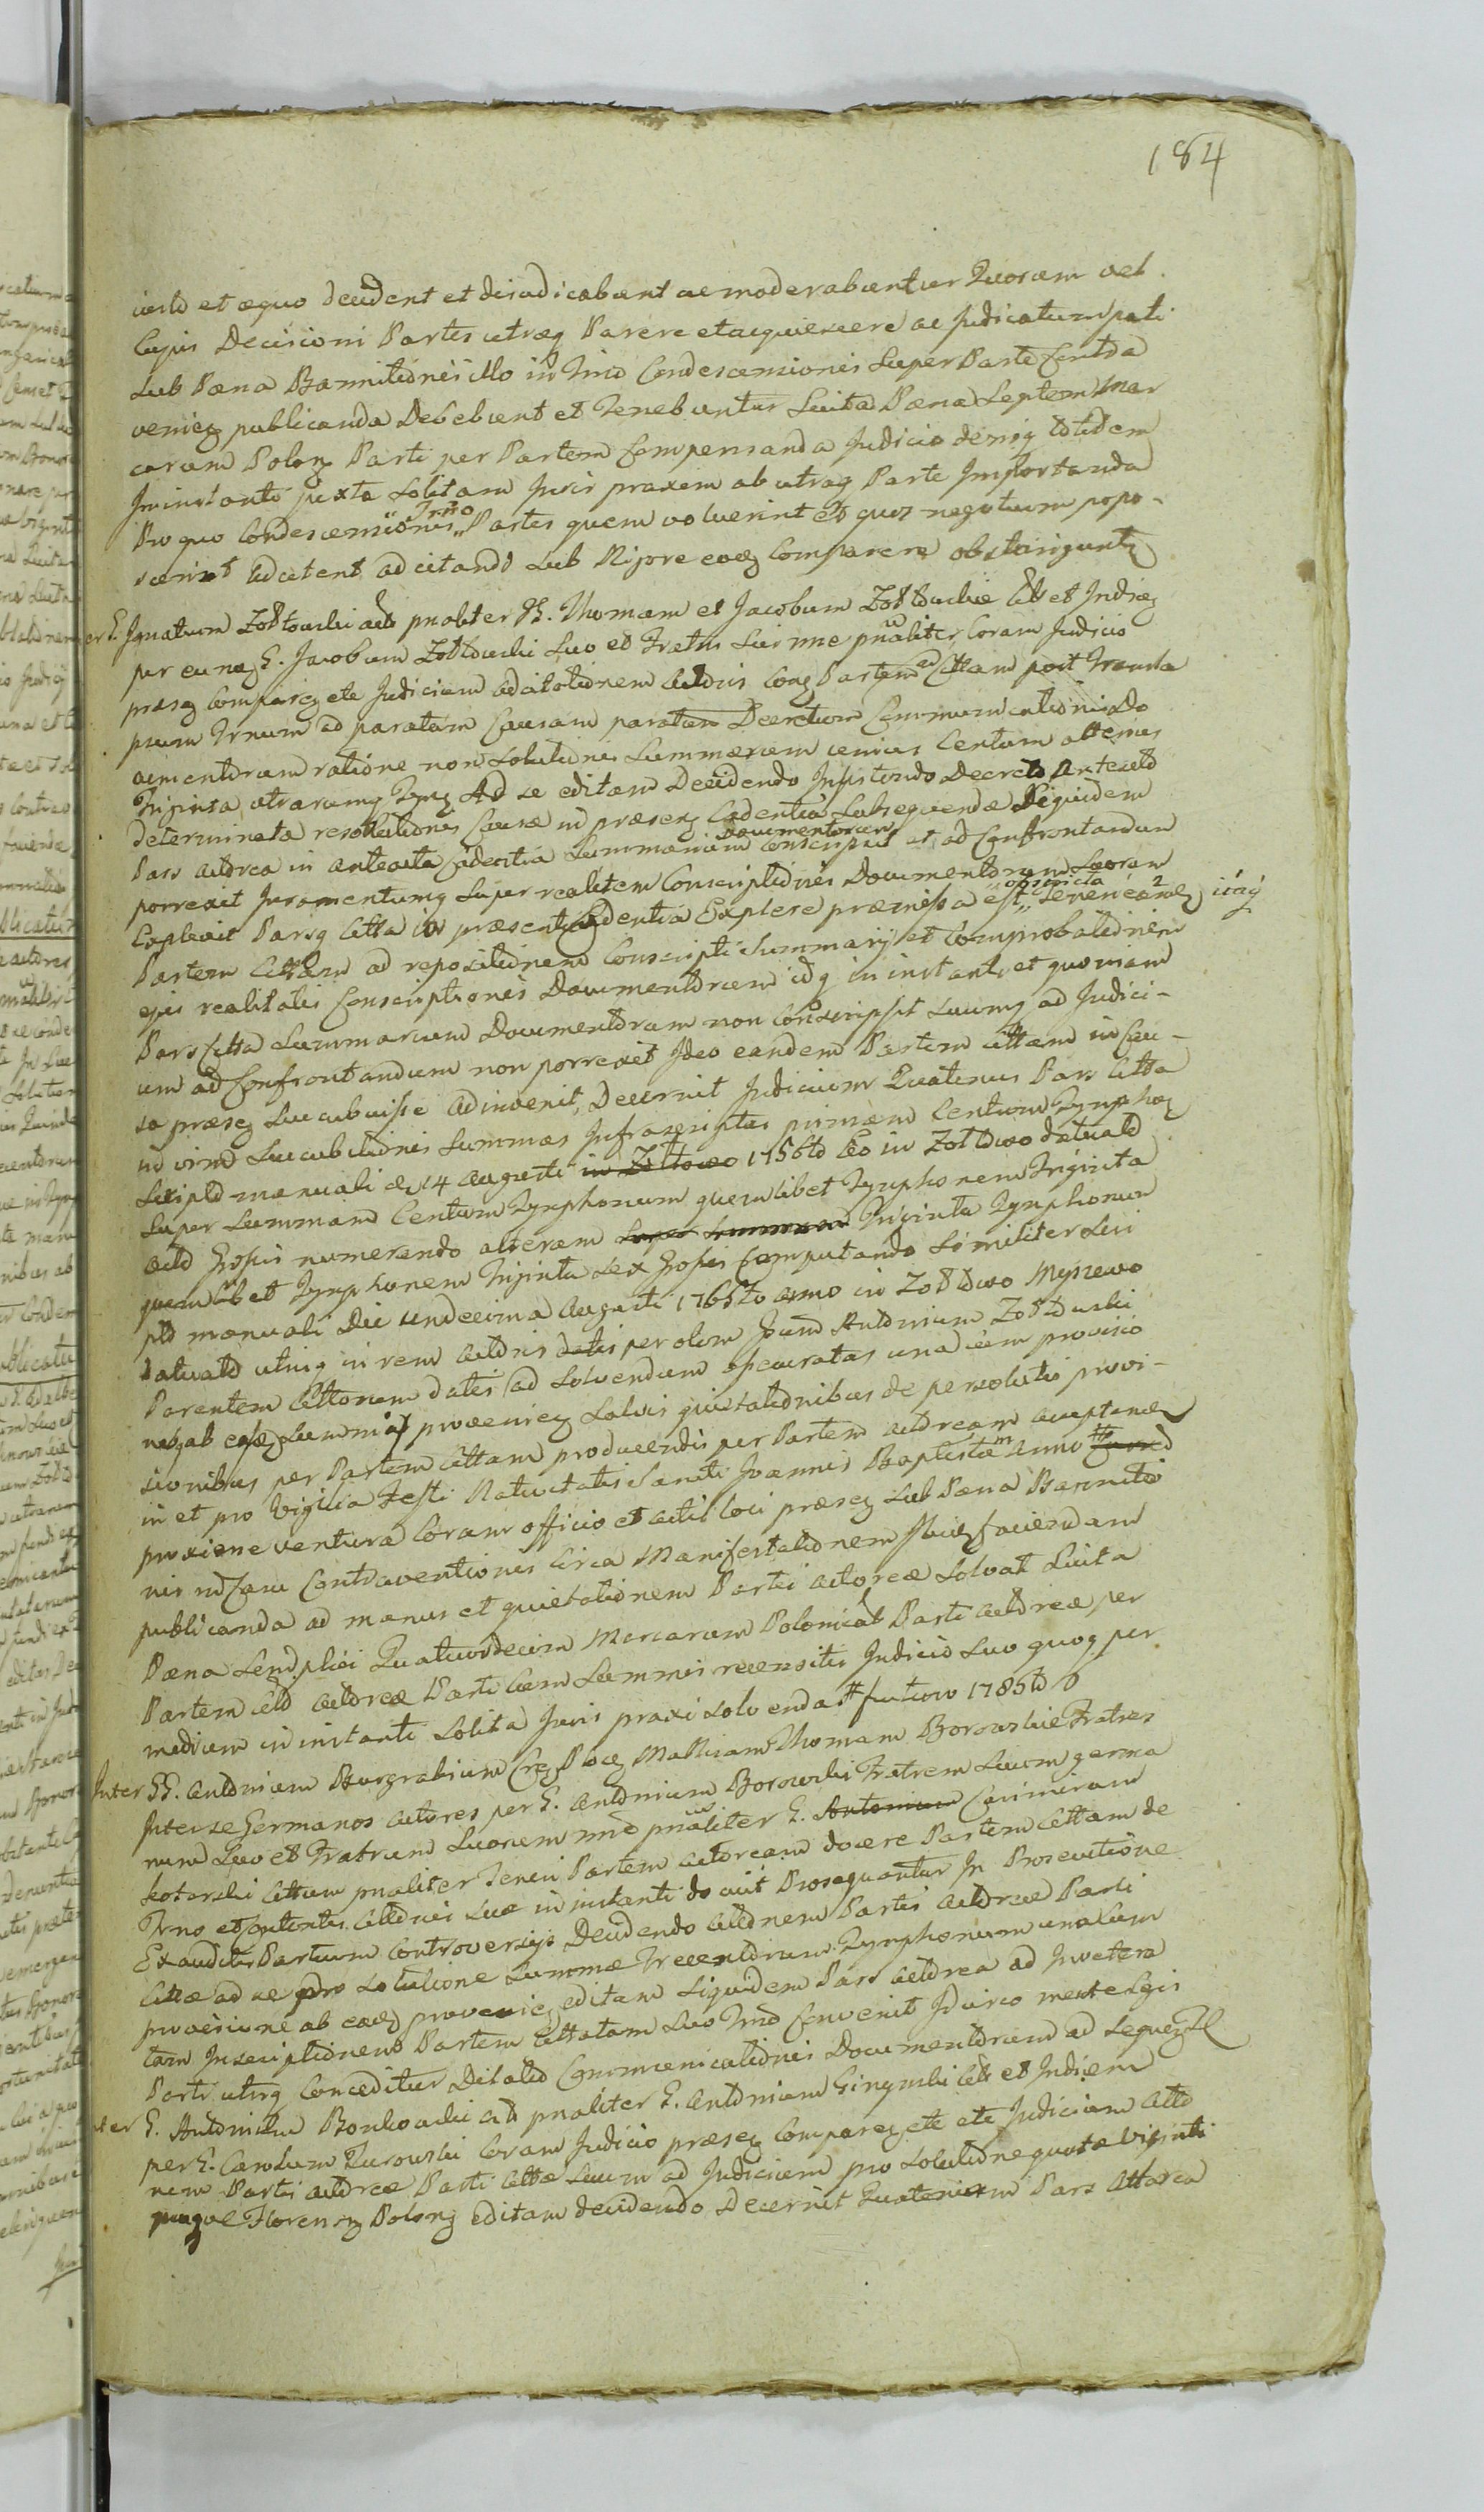 184
iusto et æquo decident et dijudicabunt ac moderabuntur Quorum vel
Cujus Decisioni Partes utræq Parere et acquiescere ac Judicatum pati
sub Pæna Bannitionis illo in Tmo Condescensionis super Parte Contra
venieq publicanda Debebunt et Tenebuntur Luita Pæna Septem Mar
carum Polonq Parti per Partem Compensanda Judicio deniq totidem
Ininstanti juxta Solitam Juris praxem ab utraq Parte Importanda
Pro quo Condescensionis Tmo Partes quem voluerint et quos negotium popo-
scerit adcitent ad citando sub Rigore eoq Comparere obstringuntq
er G. Ignatium Zołtowski act pnaliter G. Thomam et Jacobum Zołtowskie Citt et Indieq
per eunq G. Jacobum Zołtowski suo et Fratris sui nne pnaliter Coram Judicio
præsq Comparq ete Judicium ad citationem Actoris Conq Partem Cittam post Transla
psum Trnum ad paratam Causam paratum Decretum Communicationis Do
cumentorum ratione non Solutionis Summarum unius Centum alterius
Triginta utrarumq Tynq Ad se editam Decidendo Insistendo Decreto Antelato
determinata resolutionis Causæ in præsenq Cadentia Subsequendæ Siquidem
Pars Actorea in anteacta Cadentia Summarium Documentorum Conscripsit et ad Confrontandum
porrexit Juramentumq Super realitem Conscriptionis Documentorum Suorum
Explevit Parsq Citta in præsenti Cadentia Explere præmissa est obstricta itaq
Partem Cittam ad repositionem Conscripti Summarij et Comprobationem
ejus realitatis Conscriptionis Documentorum idq in instanti et quoniam
Pars Citta Summarium Documentorum non Conscripsit Suumq ad Judici-
um ad Confrontandum non porrexit Ideo eandem Partem Cittam in Cau-
sa præsq Succubuisse adinvenit, Decernit Judicium Quatenus Pars Citta
in vim Succubitionis Summas Infrascriptas primam Centum Tynphoq
Scripto manuali de 14 Augusti in Zołtowo 1756to Ao in Zołtowo datuato
super summam Centum Tynphonum quemlibet Tynphonem Triginta
octo Grossis numerando alteram super summam Triginta Tynphonum
quemlibet Tynphonem Triginta sex Grossis Computando Similiter Scri
pto manuali Die undecima Augusti 1765to Anno in Zołtowo
datuato utriq in rem Actoris datis per olim Gnum Antonium Zołtowski
Parentem Cittorum datis ad Solvendum assecuratas una cum provisio
nebq ab eisdeq Summis provenieq Salvis quietationibus de persolutis provi-
sionibus per Partem Cittam producendis per Partem Actoream acceptandq
in et pro Vigilia Festi Nativitatis Sancti Joannis Baptistæ in Anno #
proxime ventura Coram officio et Actis loci præsq sub Pæna Bannitio
nis in Casu Contraventionis Circa Manifestationem faciendam
publicanda ad manus et quietationem Partis Actoreæ Solvat Luita
Pæna Simplici Quatuordecim Marcarum Polonical Parti Actoreæ per
Partem Actoreæ Parti Cum Summis recensitis Judicio suo quoq per
medium in instanti Solita Juris praxi Solvenda # futuro 1785to
Inter GG. Antonium Burgrabium Matthiam Thomam Borowskie Fratres
Inter se Germanos Actores per G. Antonium Borowski Fratrem Suum germa
num suo et Fratrum Suorum nne pnaliter G. Antonium Casimirum
Kotarski Cittum pnaliter Teneri Partem Actoream docere Partem Cittam de
Trno et Contentis Citationis Suæ in instanti docuit Prosequantur In Prosecutione
Exauditis Partium Controversijs Decidendo Actionem Partis Actoreæ Parti
Cittæ ad se pro Solutione Summæ Trecentorum Tynphonum una Cum
provisione ab eadq provenieq editam Siquidem Pars Actorea ad Invetera
tam Inscriptionem Partem Cittatam suo Tmo Convenit Idcirco mente Legis
Parti utriq Conceditur Dilatio Communicationis Documentorum ad
ter G. Antonium Bonkowski act pnaliter G. Antonium Citt et Indiem
per G. Carolum Zurowski Coram Judicio præsq Comparq ete ete Judicium Actio
nem Partis Actoreæ Parti Cittæ suum ad Judicium pro Solutione quotæ Viginti
Florenq Polonq editam decidendo Decernit Quatenus Pars Actorea